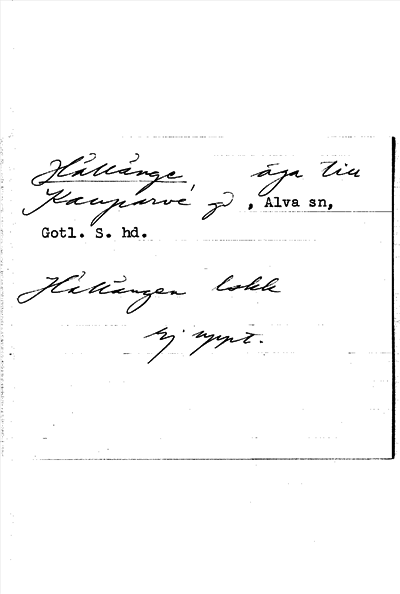 Hållänge, äga till
Kauparve gd, Alva sn,
Gotl. S. hd.
Hållängen lokk
ej uppt.